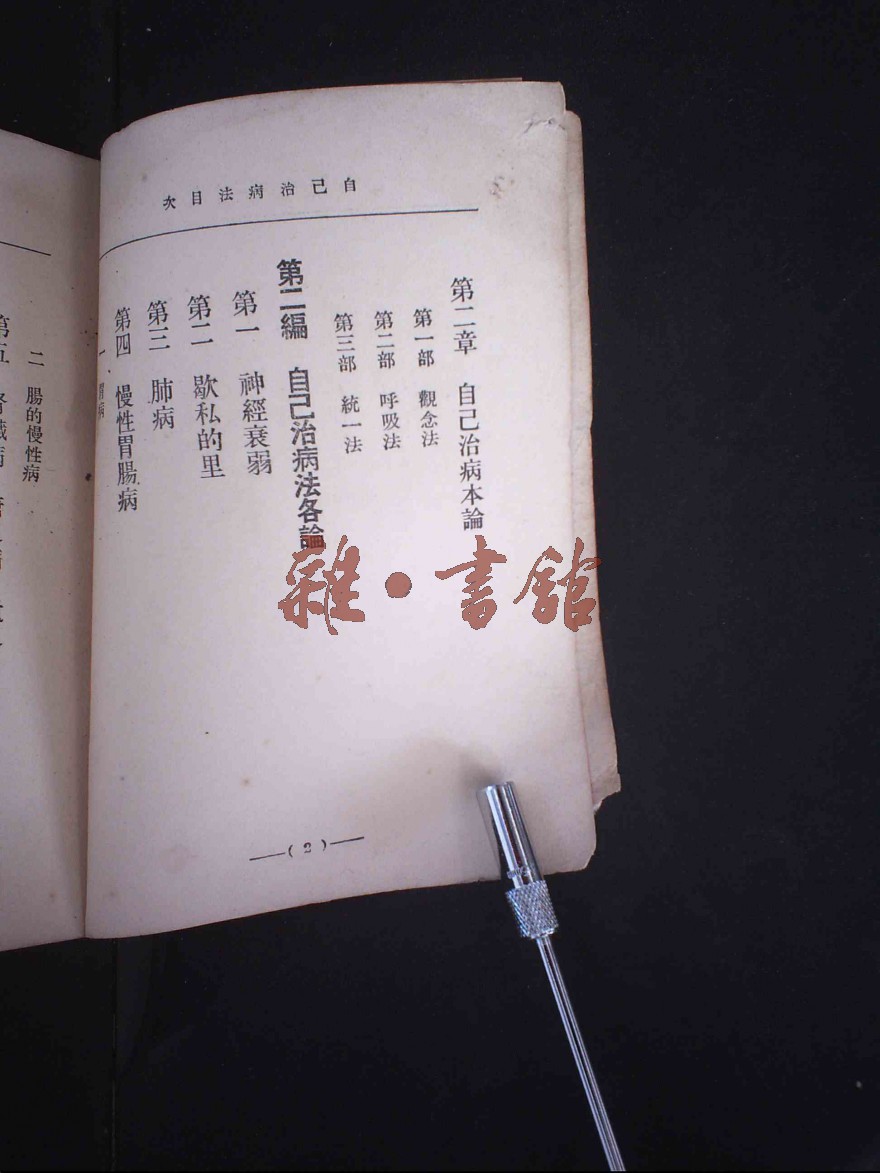 自己治病法目次
第二章 自己治病本論
第一部 觀念法
第二部 呼吸法
第三部 統一法
第二編 自己治病法各論
第一 神經衰弱
第二 歇私的里
第三 肺病
第四 慢性胃腸病
一 胃病
(2)
二 腸的慢性病
雜·書館